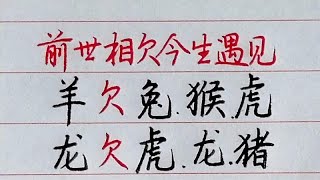 前世相欠今生遇见
羊欠兔.猴.虎
龙欠虎.龙.猪